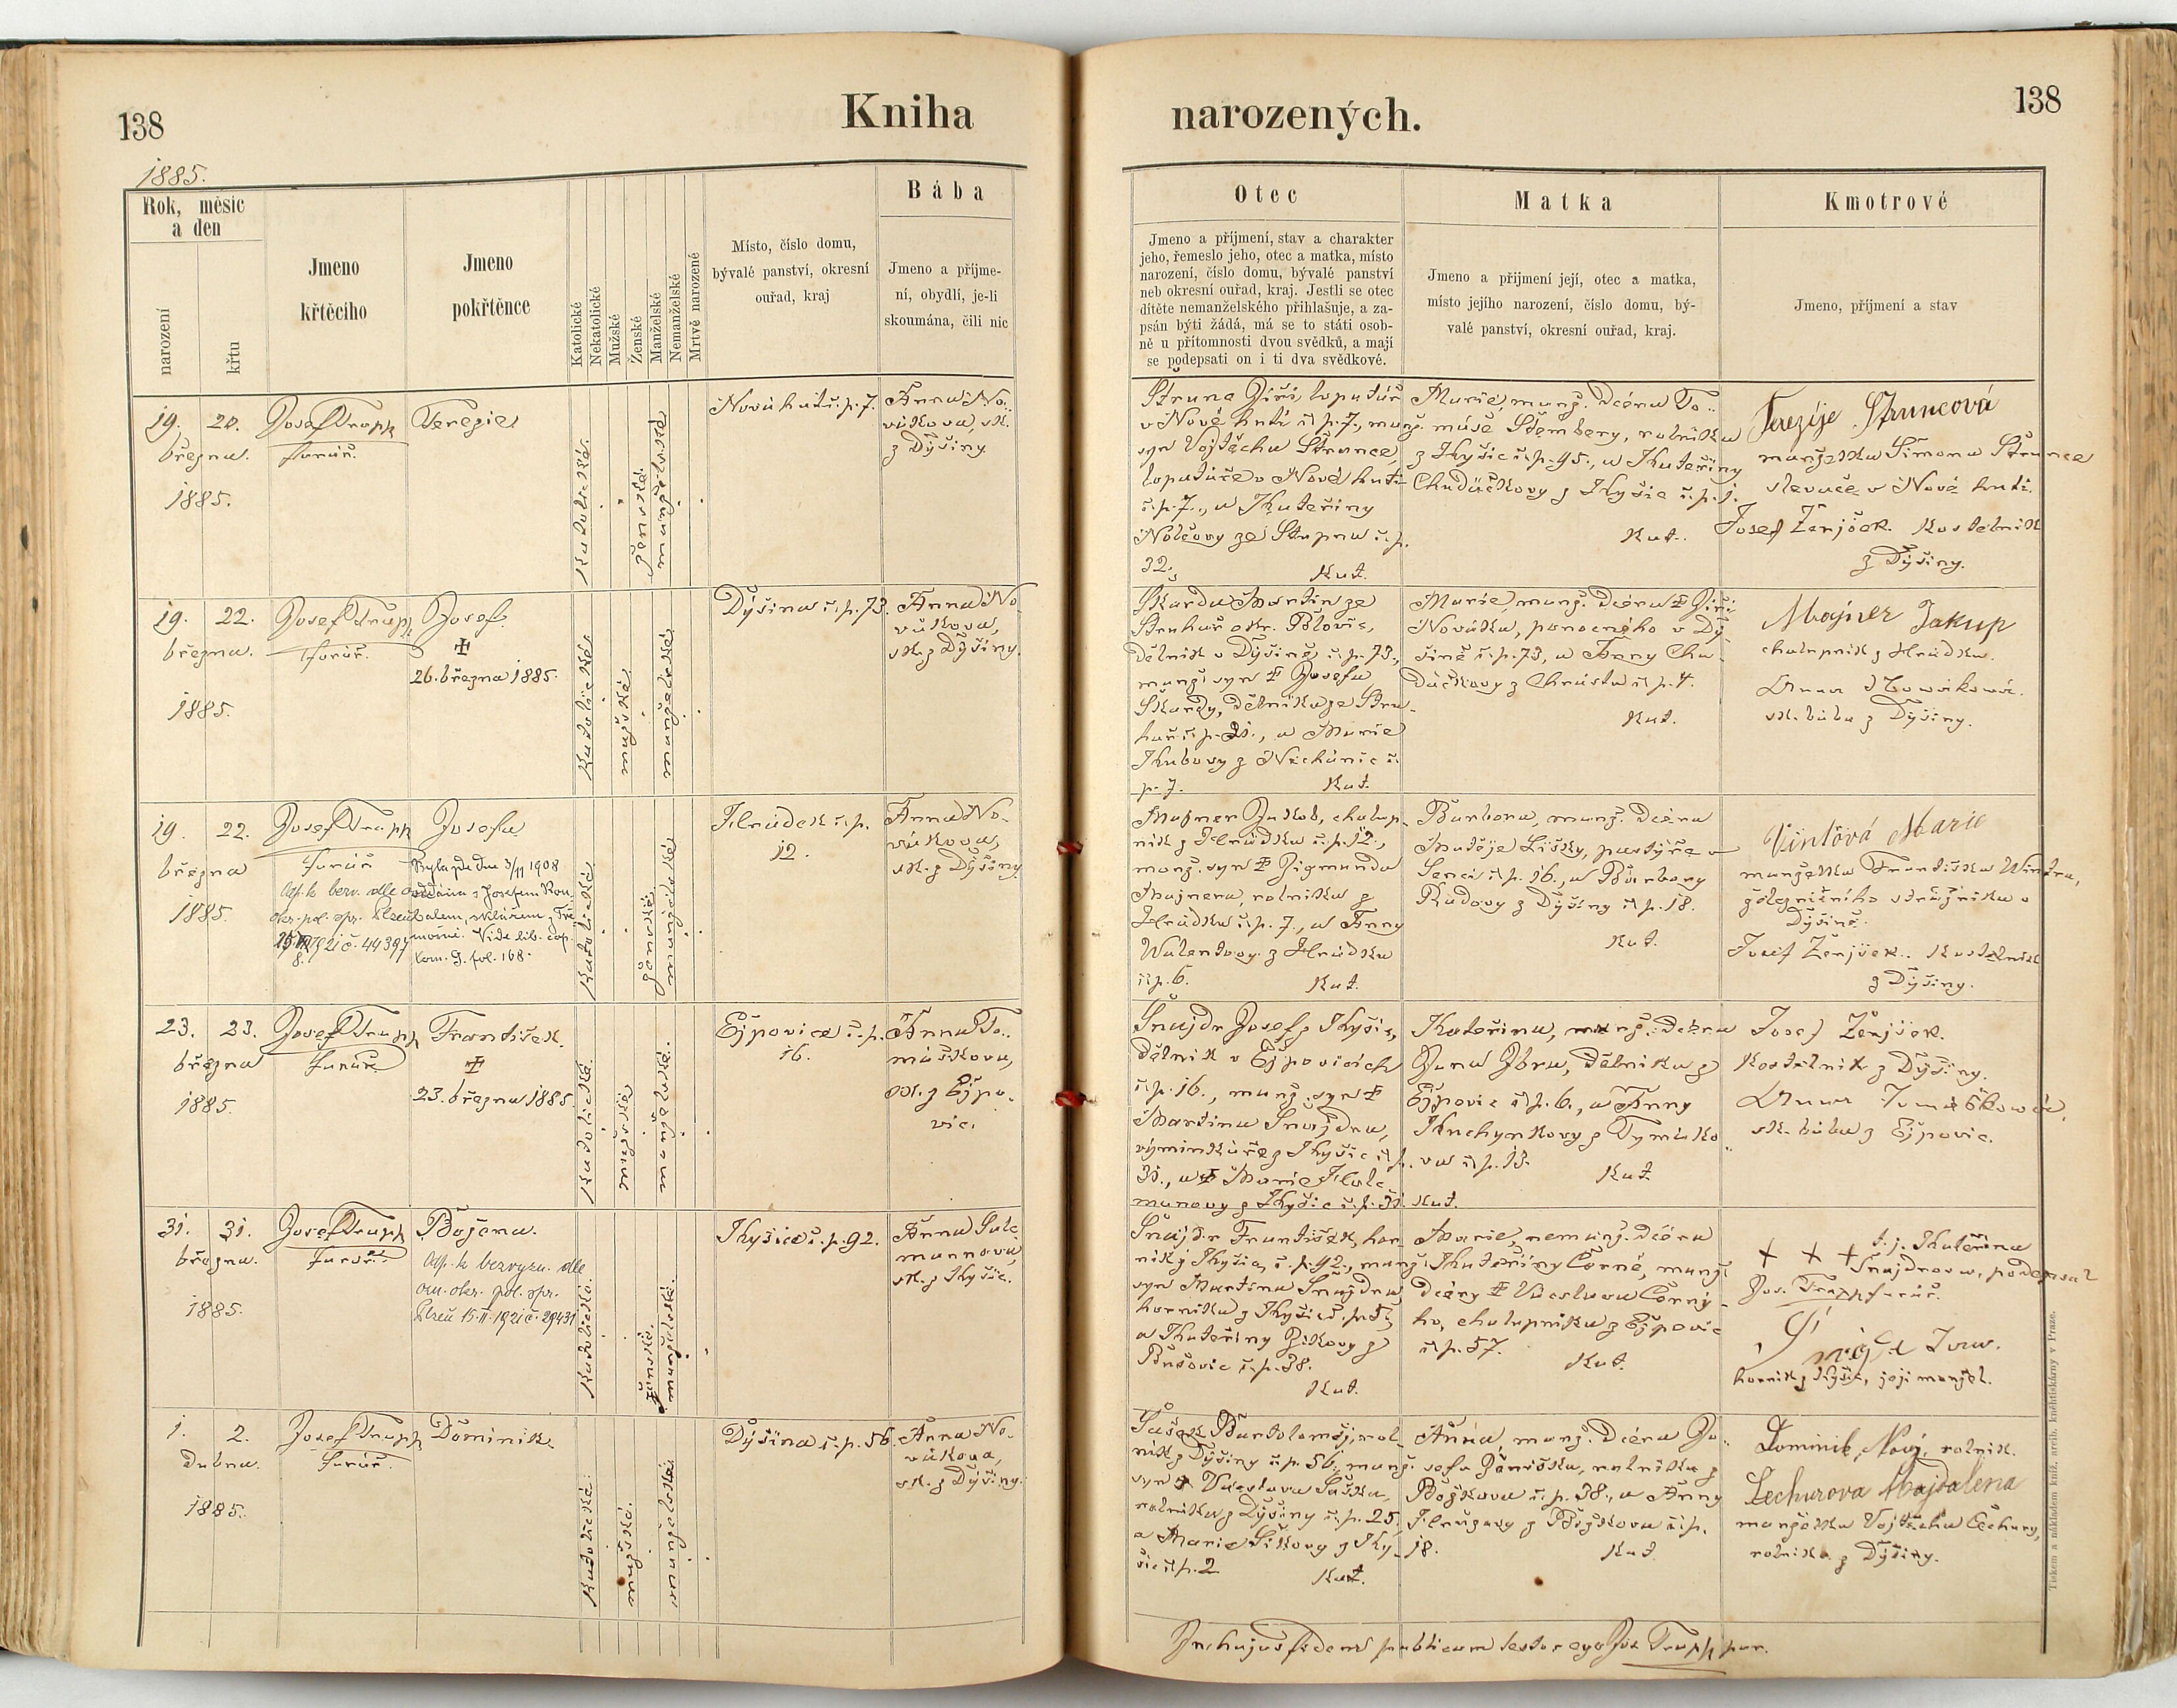 138
Kniha
narozených.
138
1885.
Rok, měsíc
a den
narození
křtu
Jmeno
křtěcího
Jmeno
pokřtěnce
Katolické
Nekatolické
Mužské
Ženské
Manželské
Nemanželské
Mrtvě narozené
Místo, číslo domu,
bývalé panství, okresní
ouřad, kraj
Bába
Jmeno a příjme-
ní, obydlí, je-li
skoumána, čili nic
Otec
Jmeno a příjmení, stav a charakter
jeho, řemeslo jeho, otec a matka, místo
narození, číslo domu, bývalé panství
neb okresní ouřad, kraj. Jestli se otec
dítěte nemanželského přihlašuje, a za-
psán býti žádá, má se to státi osob-
ně u přítomnosti dvou svědků, a mají
se podepsati on i ti dva svědkové.
Matka
Jmeno a příjmení její, otec a matka,
místo jejího narození, číslo domu, bý-
valé panství, okresní ouřad, kraj.
Kmotrové
Jmeno, příjmení a stav
19. 20.
března.
1885.
Josef Trapp
farář.
Terezie
katolické.
ženské.
manželské
Nová huť č. p. 7.
Anna No-
váková, zk.
z Dýšiny
Štrunc Jiří, lopatář
v Nové huti č. p. 7., manž.
syn Vojtěcha Štrunce,
lopatáře v Nové huti
č. p. 7., a Kateřiny
Nolčovy ze Stupna č. p.
32. Kat.
Marie, manž. dcera To-
máše Štembery, rolníka
z Kyšic č. p. 45., a Kateřiny
Chudáčkovy z Kyšic č. p. 1.
Kat.
Terezije Štruncová
manželka Šimona Štrunce
slevače v Nové huti.
Josef Ženjšek. kostelník
z Dýšiny.
19. 22.
března.
1885.
Josef Trapp
farář.
Josef.
26. března 1885.
katolické
mužské
manželské
Dýšina č. p. 73.
Anna No-
váková,
zk. z Dýšiny.
Škarda Martin ze
Struhař okr. Blovic,
dělník v Dýšině č. p. 73.,
manž. syn Josefa
Škardy, dělníka ze Stru-
hař č. p. 21., a Marie
Kubovy z Nechánic č.
p. 7. Kat.
Marie, manž. dcera Jiří
Nováka, ponocného v Dý-
šině č. p. 73, a Anny Chu-
dáčkovy z Chrástu č. p. 4.
Kat.
Majner Jakup
chalupník z Hrádku.
Anna Nowáková.
zk. bába z Dýšiny.
19. 22.
března
1885.
Josef Trapp
farář
Josefa
Byla zde dne 3/11 1908
oddána s Josefem Kou-
balem, sklářem, Tře-
mošné. Vide lib. cop.
tom. G. fol. 168.
katolické
ženské.
manželské
Hrádek č. p.
12.
Anna No-
váková,
zk. z Dýšiny
Majner Jakob, chalup-
ník z Hrádku č. p. 12.,
manž. syn Zigmunda
Majnera, rolníka z
Hrádku č. p. 7., a Anny
Walentovy z Hrádku
č. p. 6. Kat.
Barbora, manž. dcera
Matěje Lišky, pastýře v
Senci č. p. 16., a Barbory
Rudovy z Dýšiny č. p. 18.
Kat.
Vintová Marie
manželka Františka Wintra,
železničního strážníka v
Dýšině.
Josef Ženjšek. kostelník
z Dýšiny.
23. 23.
března
1885.
Josef Trapp
farář
František.
23. března 1885.
katolické
mužské
manželské.
Ejpovice č. p.
16.
Anna To-
mášková,
zk. z Ejpo-
vic.
Šnajdr Josef z Kyšic,
dělník v Ejpovicích
č. p. 16., manž. syn
Martina Šnajdra,
výminkáře z Kyšic č. p.
31., a Marie Hole-
manovy z Kyšic č. p. 31. Kat.
Kateřina, manž. dcera
Jana Jbra, dělníka z
Ejpovic č. p. 6., a Anny
Kuchynkovy z Tymáko-
va č. p. 13.
Kat.
Josef Ženjšek.
Kostelník z Dýšiny.
Anna Tomáškowá,
zk. bába z Ejpovic.
31. 31.
března.
1885.
Josef Trapp
farář.
Božena.
Odp. k bezvyzn. dle
ozn. okr. pol. spr.
Plzeň 15. II. 1921 č. 29431
katolické.
ženské.
manželské.
Kyšice č. p. 92.
Anna Sule-
mannová,
zk. z Kyšic.
Šnajdr František, hor-
ník z Kyšic č. p. 92., manž.
syn Martina Šnajdra
horníka z Kyšic č. p. 5.,
a Kateřiny Zikovy z
Bušovic č. p. 38.
Kat.
Marie, nemanž. dcera
Kateřiny Černé, manž.
dcery Václava Černý-
ho, chalupníka z Ejpovic
č. p. 57.
Kat.
t. j. Kateřina
Šnajdrova, podepsal
Jos. Trapp farář.
horník z Kyšic, její manžel.
1. 2.
dubna.
1885.
Josef Trapp
farář.
Dominik.
katolické
mužské.
manželské
Dýšina č. p. 56.
Anna No-
váková,
zk. z Dýšiny.
Šašek Bartoloměj, rol-
ník z Dýšiny č. p. 56., manž.
syn Václava Šaška,
rolníka z Dýšiny č. p. 25,
a Marie Šikovy z Ky-
šic č. p. 2. Kat.
Anna, manž. dcera Jo-
sefa Janouška, rolníka z
Božkova č. p. 38., a Anny
Hruzovy z Božkova č. p.
18. Kat.
Dominik Nový, rolník.
Čechurova Majdalena
manželka Vojtěcha Čechury,
rolníka z Dýšiny.
In hujus fidem publicam testor ego Jos. Trapp par.
Tiskem a nákladem kníž. arcib. knihtiskárny v Praze.